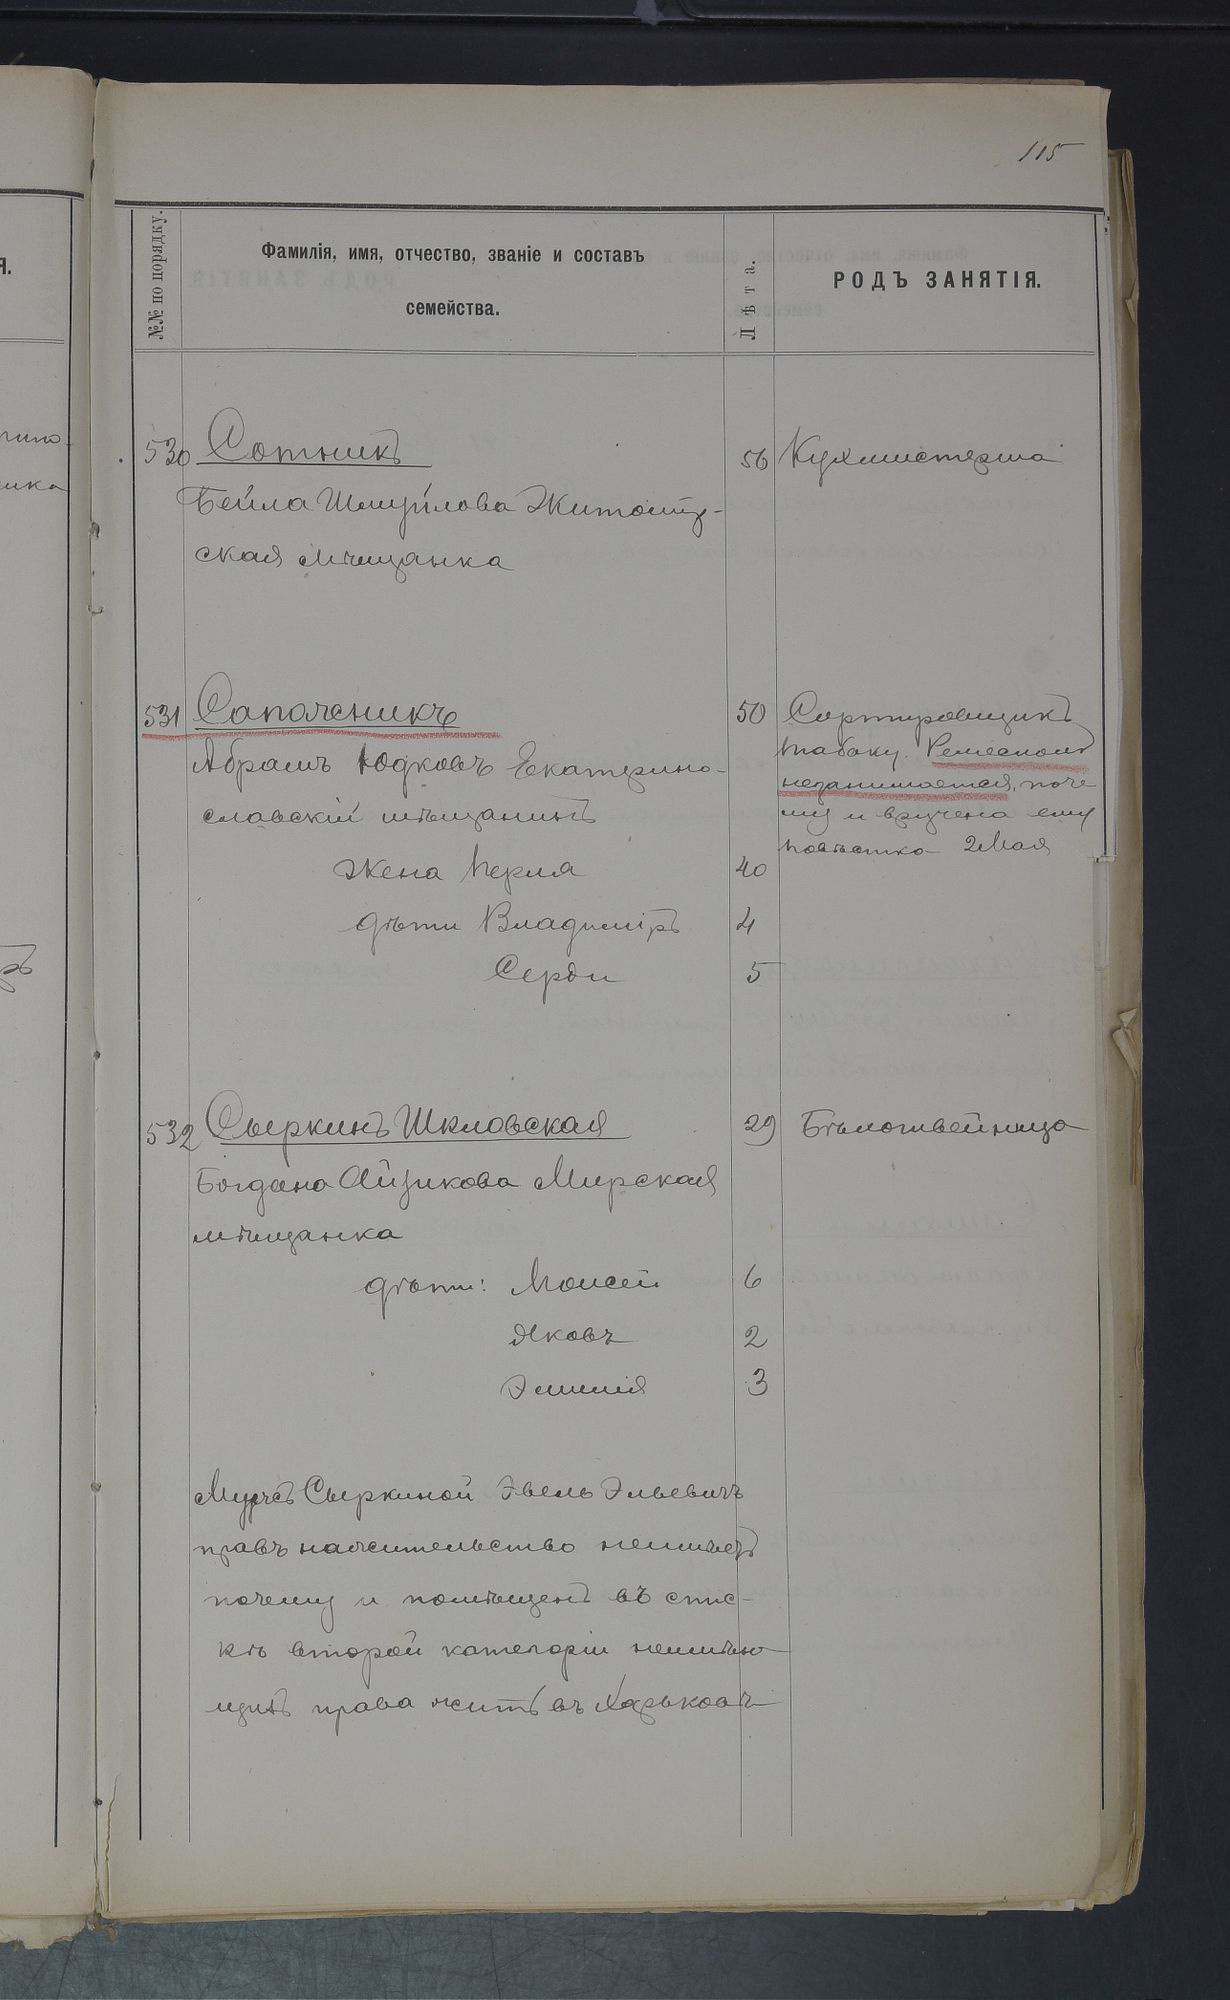 115
№№ по порядку.
Фамилія, имя, отчество, званіе и составъ
семейства.
Лѣта.
РОДЪ ЗАНЯТІЯ.
Я.
530 Сотникъ 56 Кухмистерша
Бейла Шмуйлова Житомір-
ская мѣщанка
531 Сапожникъ 50 Сортировщикъ
Абрамъ Юдковъ Екатерино- табаку. Ремесломъ
славскій мѣщанинъ незанимается, поче
му и вручена ему
повѣстка 2 Мая
Жена Перля 40
дѣти Владиміръ 4
Серди 5
532 Сыркинъ Шкловская 29 Бѣлошвейница
Богдана Айзикова Мирская
мѣщанка
дѣти: Моисей 6
Яковъ 2
Эмилія 3
Мужъ Сыркиной Эвель Эльевичъ
правъ нажительство неимѣетъ
почему и помѣщенъ въ спис-
кѣ второй категоріи неимѣю
щихъ права жить въ Харьковѣ